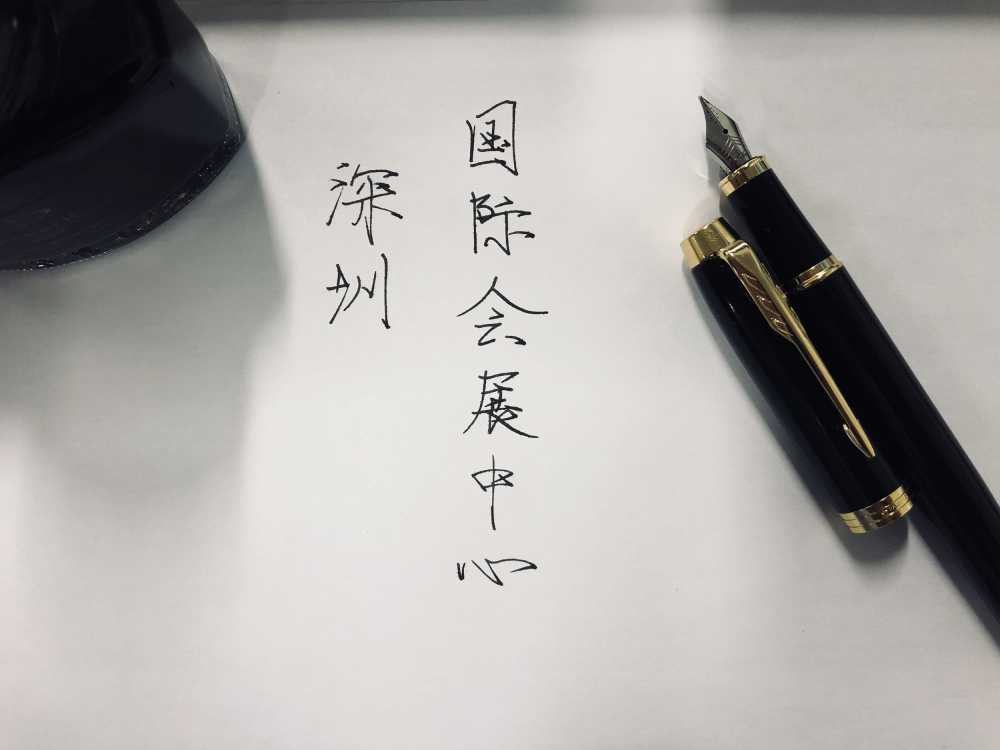 深圳
国际会展中心